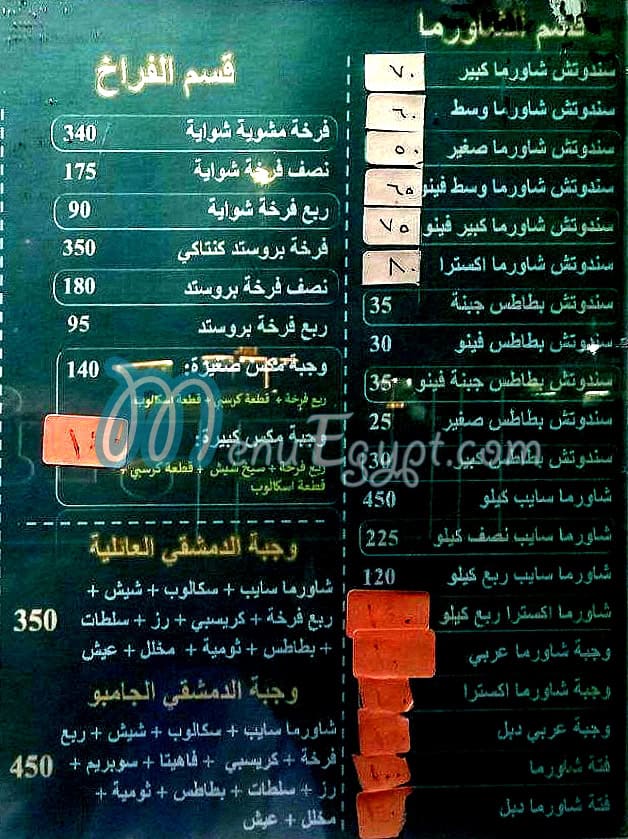 قسم الشاورما
سندوتش شاورما كبير ٧٠
سندوتش شاورما وسط ٦٠
سندوتش شاورما صغير ٥٠
سندوتش شاورما وسط فينو ٦٥
سندوتش شاورما كبير فينو ٧٥
سندوتش شاورما اكسترا ٨٠
سندوتش بطاطس جبنة 35
سندوتش بطاطس فينو 30
سندوتش بطاطس جبنة فينو 35
سندوتش بطاطس صغير 25
سندوتش بطاطس كبير 30
شاورما سايب كيلو 450
شاورما سايب نصف كيلو 225
شاورما سايب ربع كيلو 120
شاورما اكسترا ربع كيلو
وجبة شاورما عربي
وجبة شاورما اكسترا
وجبة عربي دبل
فتة شاورما
فتة شاورما دبل
قسم الفراخ
فرخة مشوية شواية 340
نصف فرخة شواية 175
ربع فرخة شواية 90
فرخة بروستد كنتاكي 350
نصف فرخة بروستد 180
ربع فرخة بروستد 95
وجبة مكس صغيرة: 140
ربع فرخة + قطعة كرسبي + قطعة اسكالوب
وجبة مكس كبيرة:
ربع فرخة + سيخ شيش + قطعة كرسبي +
قطعة اسكالوب
وجبة الدمشقي العائلية
شاورما سايب + سكالوب + شيش +
ربع فرخة + كريسبي + رز + سلطات 350
+ بطاطس + ثومية + مخلل + عيش
وجبة الدمشقي الجامبو
شاورما سايب + سكالوب + شيش + ربع
فرخة + كريسبي + فاهيتا + سوبريم + 450
رز + سلطات + بطاطس + ثومية +
مخلل + عيش
MenuEgypt.com